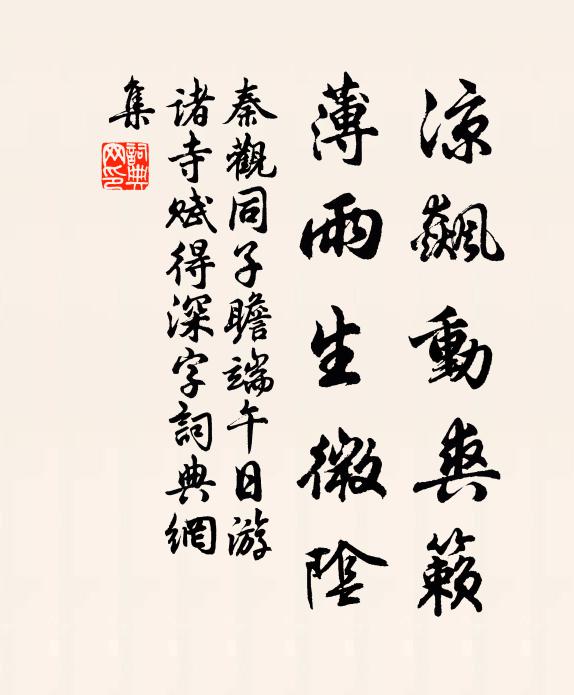 涼飆動爽籟
薄雨生微陰
秦觀同子瞻端午日游
諸寺賦得深字詞典網
集
詞典網印